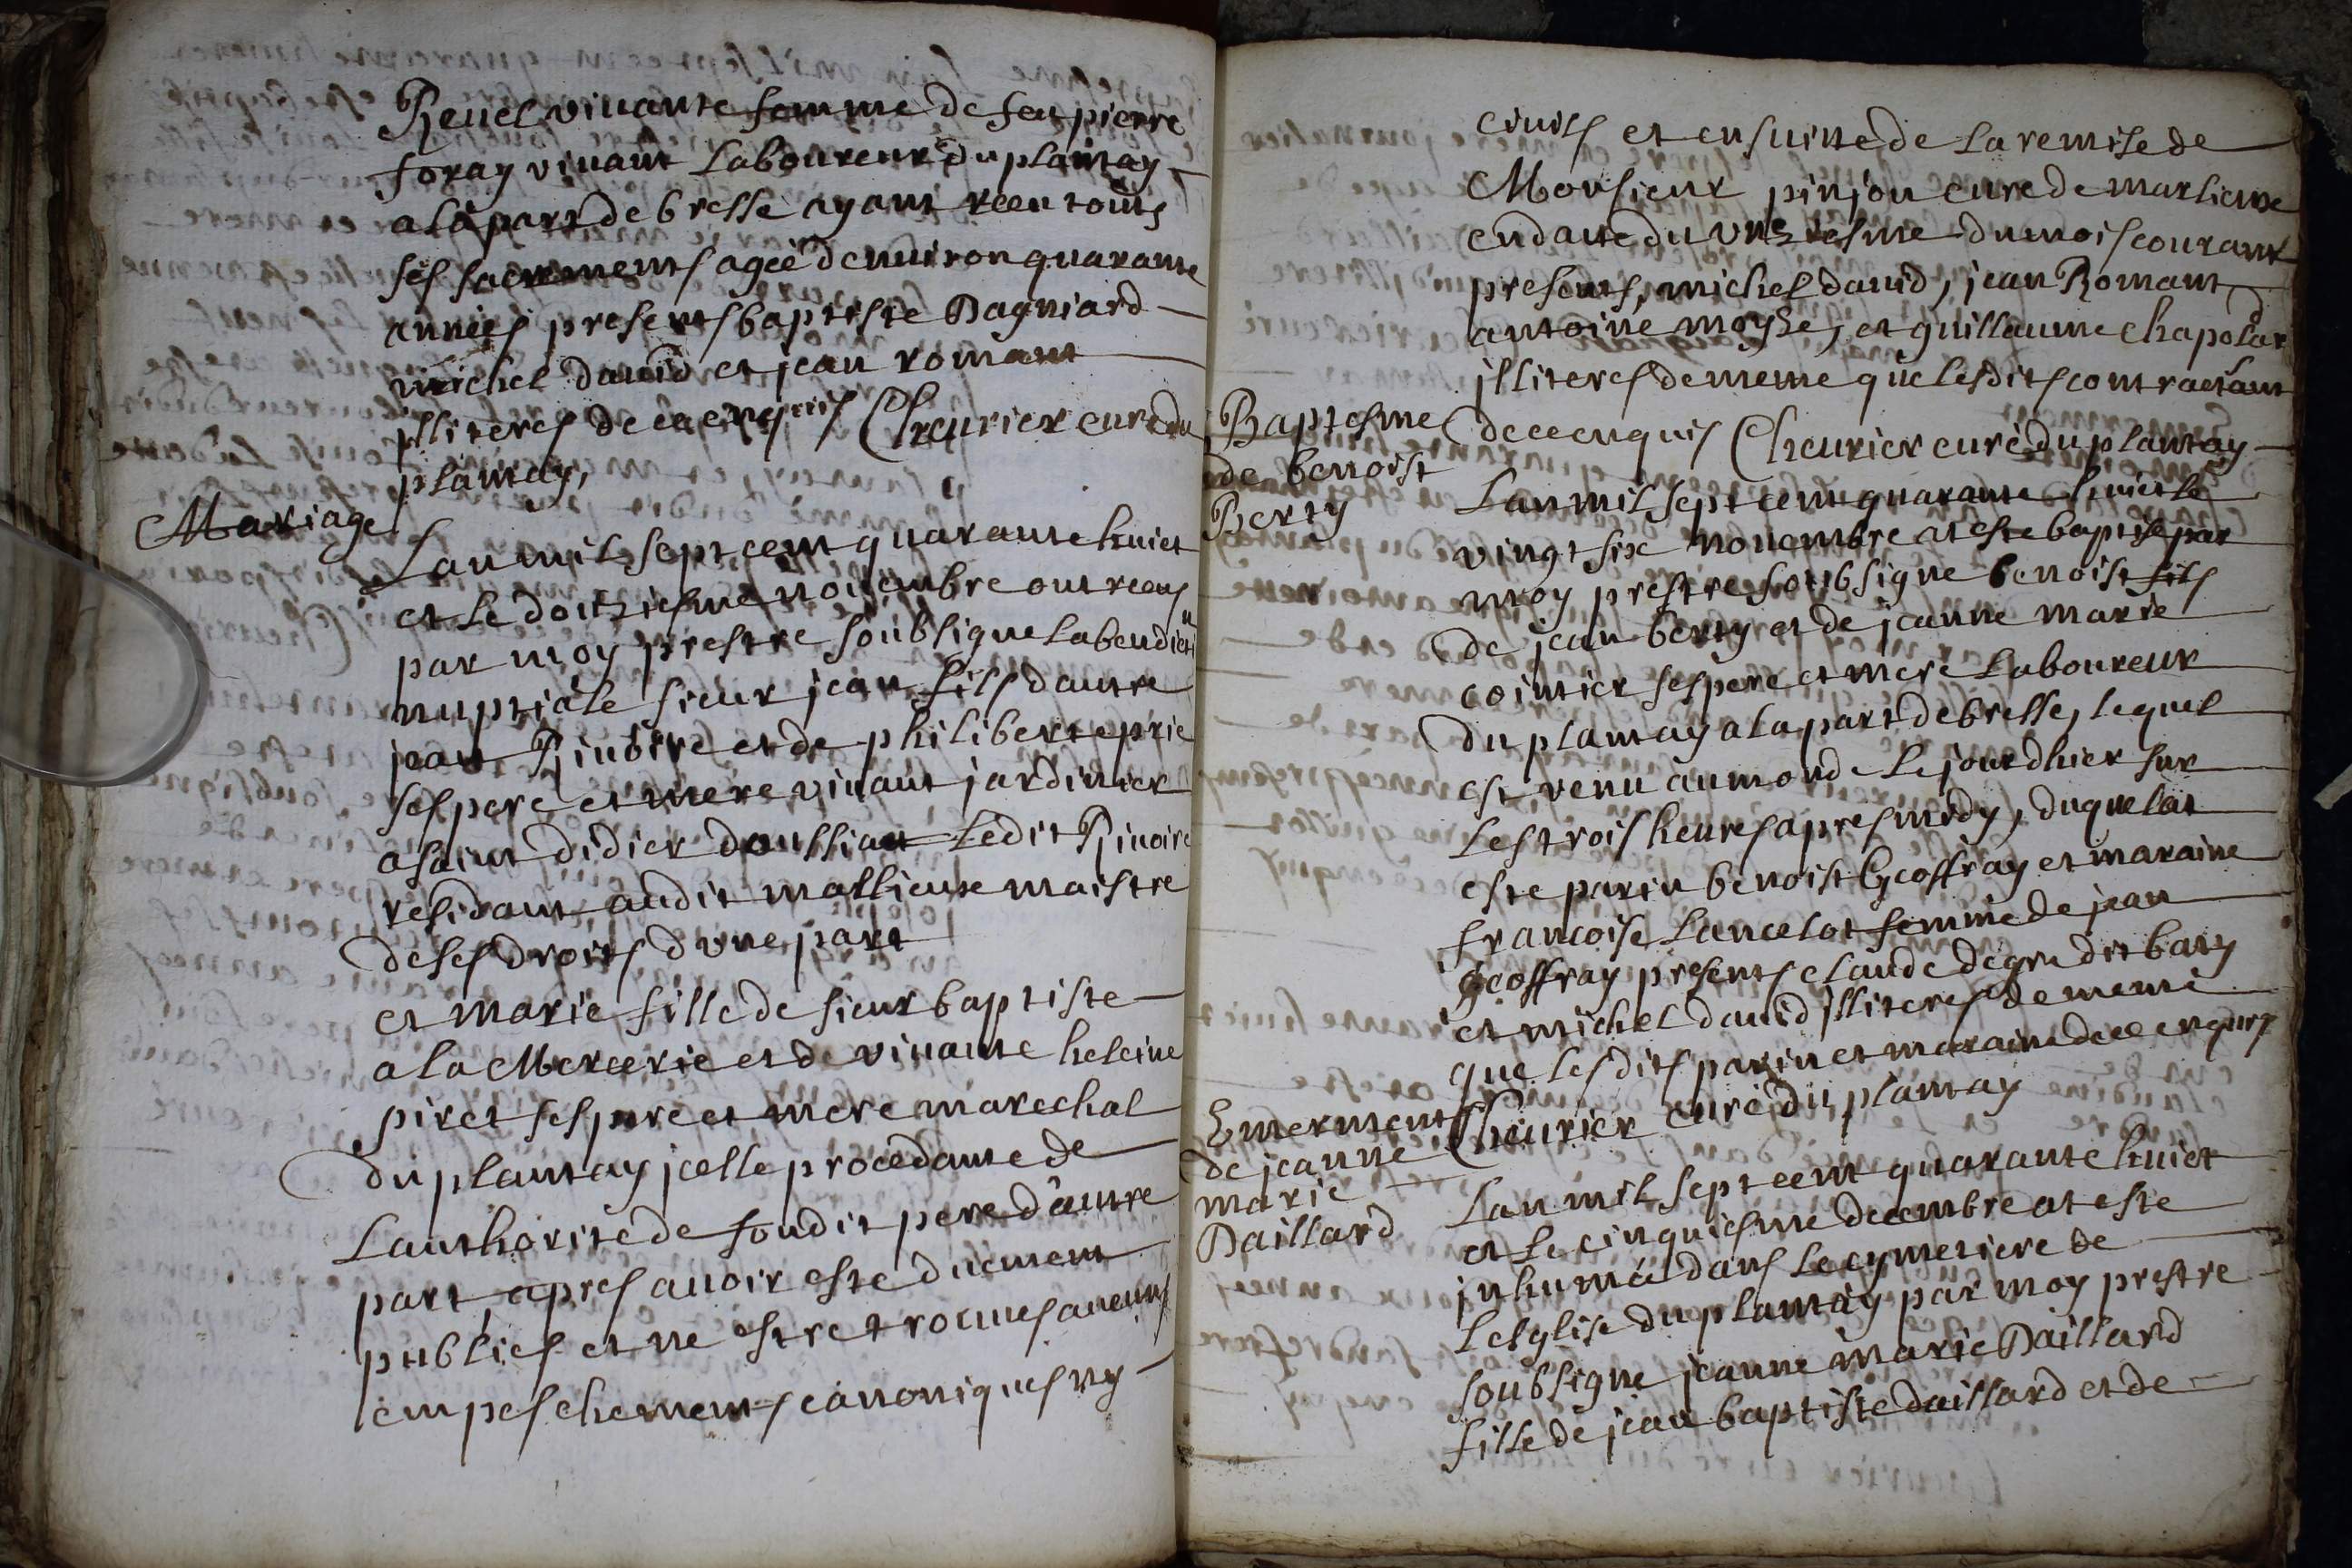 Revel vivante femme de feu pierre
foray vivant Laboureur du plantay
a la part de bresse ayant receu touts
ses sacrements agée denviron quarante
années presents baptiste Dagniard
michel david et jean romant
jlliteres de ce enquis Cheurier curé du
plantay,
Mariage
Lan mil sept cent quarante huict
et le douziesme novembre ont receus
par moy prestre soubsigne La benedicti
on
nuptiale sieur jean fils dautre
jean Rivoire et de philiberte prie
ses pere et mere vivant jardinier
a saint didier daussiat Ledit Rivoire
residant audit marlieux maistre
de ses droits dune part
et marie fille de sieur baptiste
a la Mercerie et de vivante heleine
piret ses pere et mere marechal
du plantay jcelle procedante de
Lauthorité de soudit pere dautre
part, apres avoir esté duement
publies et ne sestre trouvés aucuns
empeschements canoniques ny
civils et ensuitte de La remise de
Monsieur pinjon curé de marlieux
en datte du unziesme du mois courant
presents, michel david, jean Romant
antoine moyse, et guillaume chapolar
jlliteres de meme que lesdits contractant
de ce enquis Cheurier curé du plantay
Baptesme
de benoist
Berty
Lan mil sept cent quarante huict le
vingt six novembre at esté baptisé par
moy prestre soubsigne benoist fils
de jean berty et de jeanne marie
cointier ses pere et mere Laboureur
du plantay a la part de bresse, lequel
est venu au monde le jourdhier sur
Les trois heures apres midy, duquel at
esté parin benoist Geoffray et maraine
francoise Lancelot femme de jean
geoffray presents claude degru dit bary
et michel david jlliteres de meme
que lesdits parin et maraine de ce enquis
Cheurier curé du plantay
Enterrement
de jeanne
marie
Daillard
Lan mil sept cent quarante huict
et le cinquiesme decembre at esté
jnhumée dans le cymetiere de
Lesglise du plantay par moy prestre
soubsigne jeanne marie Daillard
fille de jean baptiste daillard et de